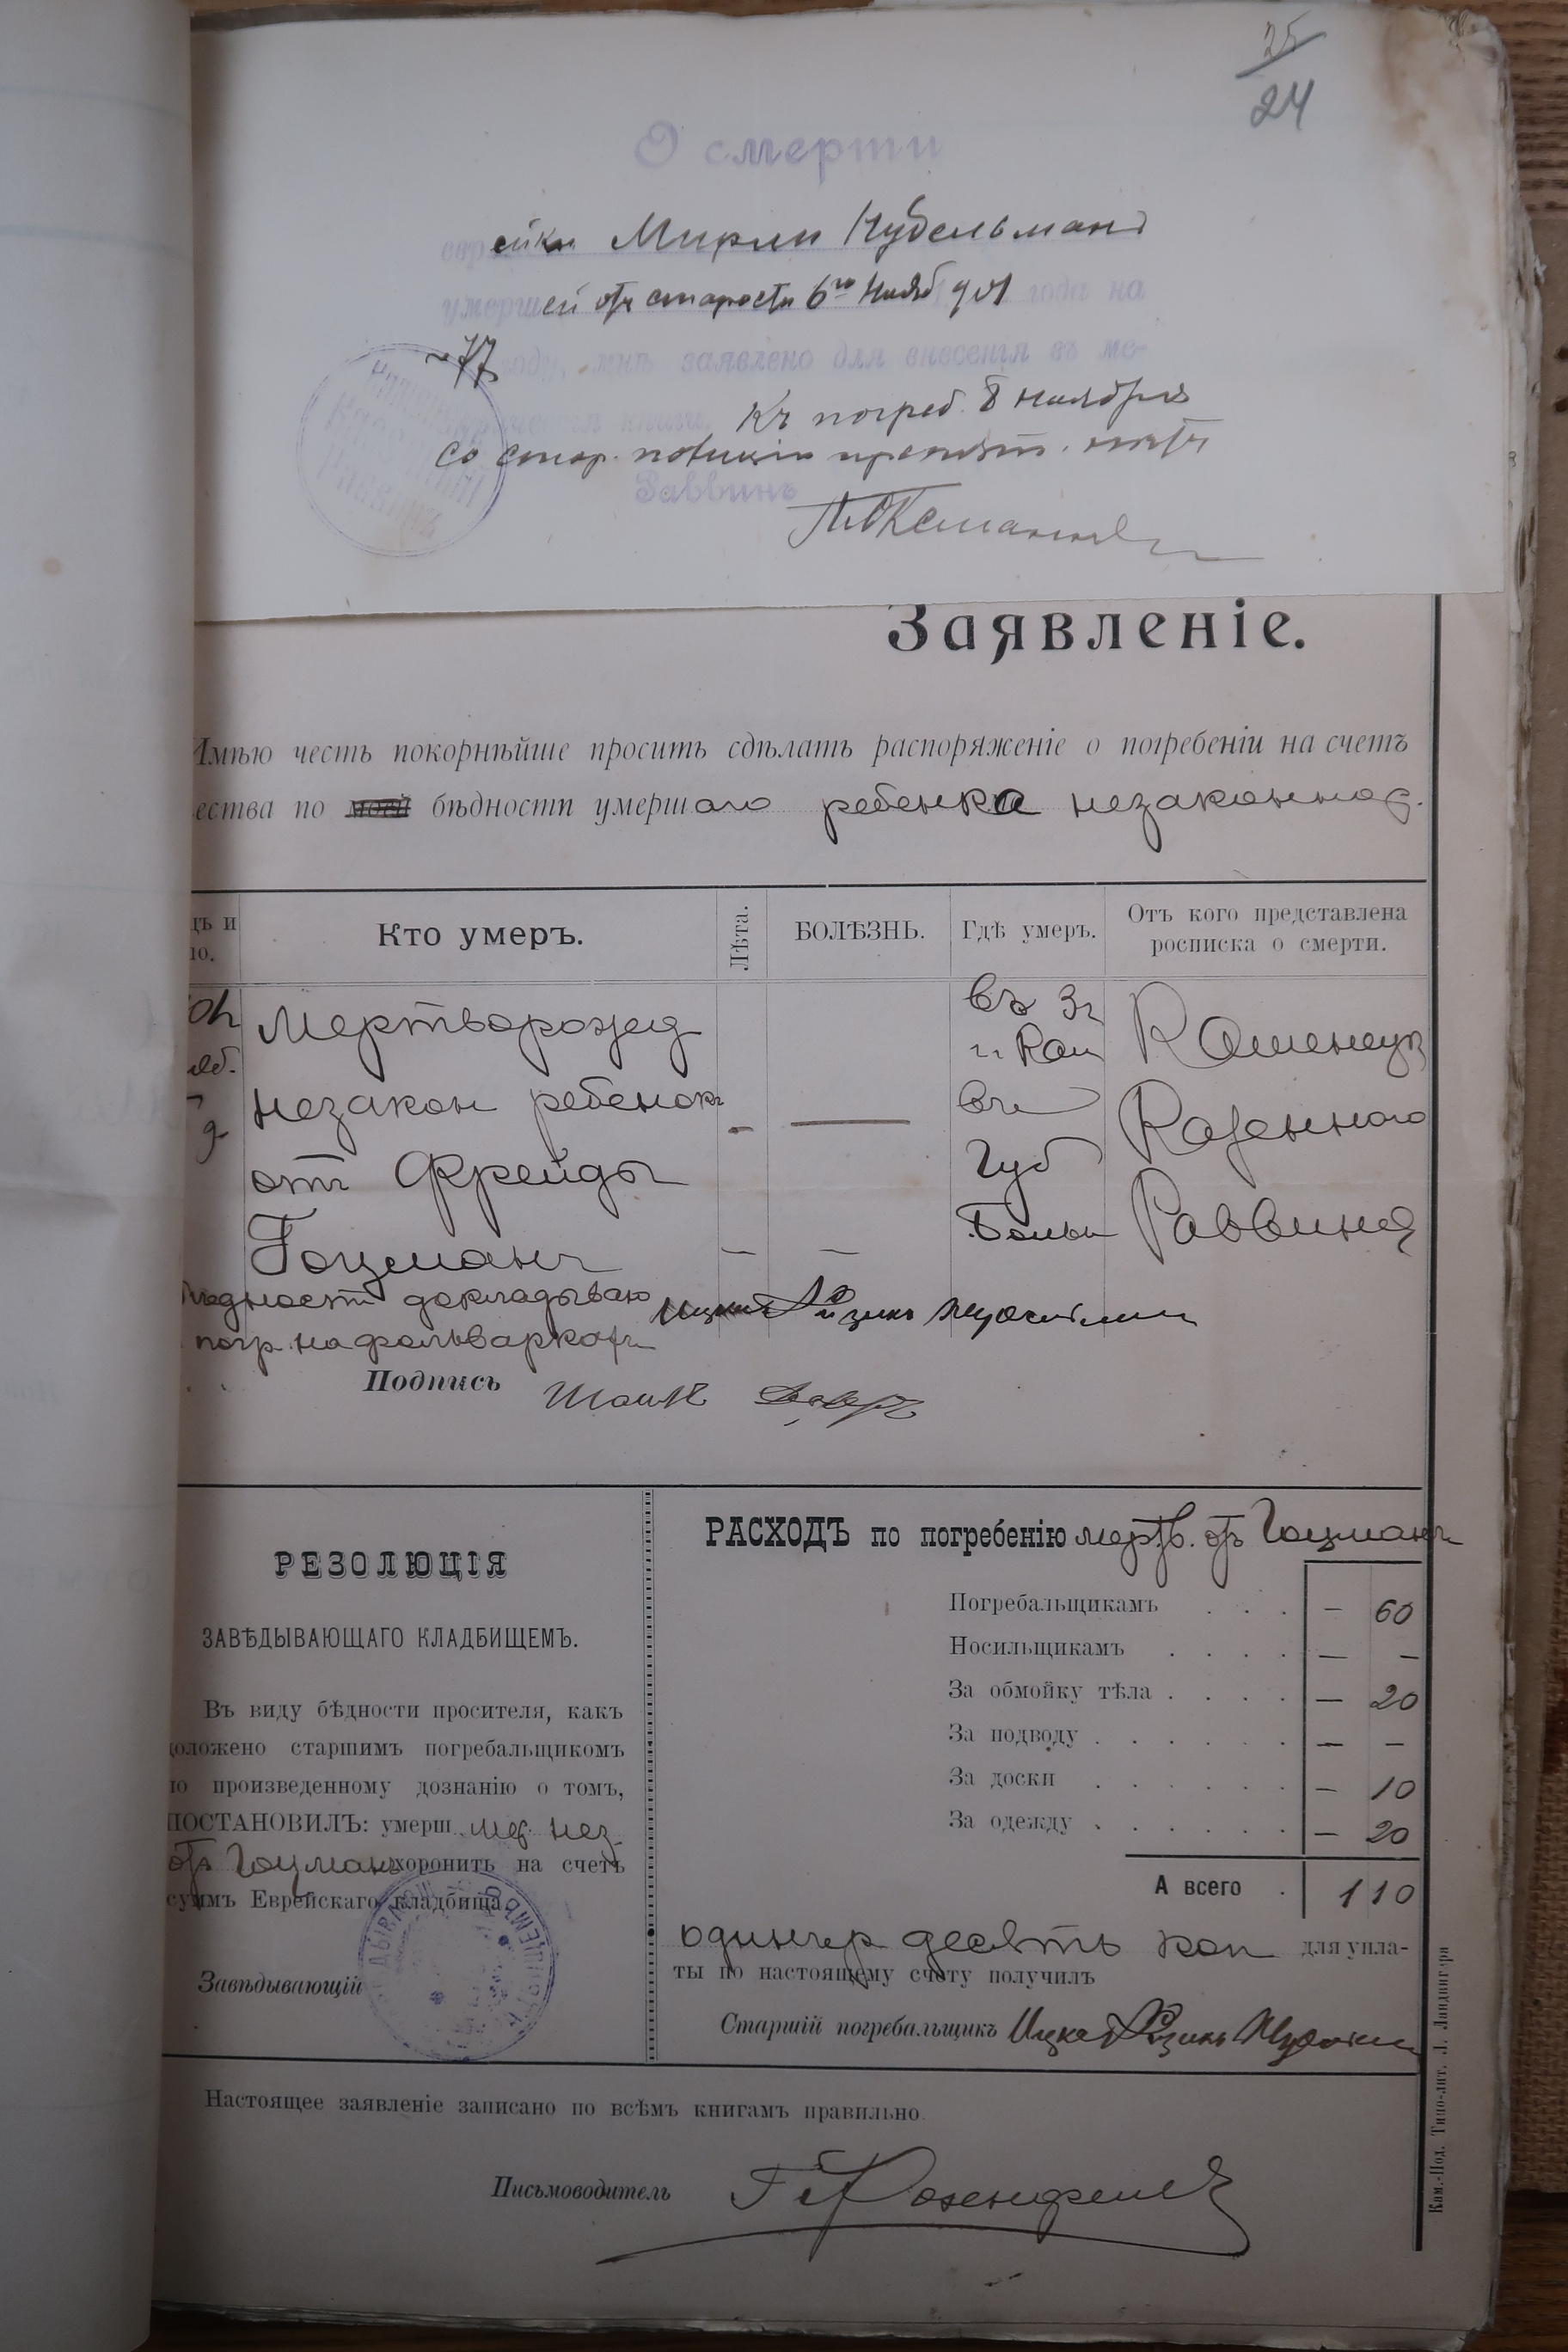 25
24
О смерти
еврейки Мирли Нудельманъ
умершей отъ старости 6го Нояб 901 года на
77 году, мнѣ заявлено для внесенія въ ме-
трическія книги. Къ погреб. 8 ноября
со стор. полиціи препятст. нѣтъ
Раввинъ
Заявленіе.
Имѣю честь покорнѣйше просить сдѣлать распоряженіе о погребеніи на счетъ
ества по моей бѣдности умершаго ребенка незаконнор.
дъ и
ло.
Кто умеръ.
Лѣта.
БОЛѢЗНЬ.
Гдѣ умеръ.
Отъ кого представлена
росписка о смерти.
Мертворожд
незакон ребенокъ
отъ Фрейды
Гоцманъ
въ
г. Кам
Губ
Больн
Каменецк
Казеннаго
Раввина
бѣдности докладываю
погр. на фольваркахъ
Подпись
РЕЗОЛЮЦІЯ
ЗАВѢДЫВАЮЩАГО КЛАДБИЩЕМЪ.
Въ виду бѣдности просителя, какъ
доложено старшимъ погребальщикомъ
по произведенному дознанію о томъ,
ПОСТАНОВИЛЪ: умерш мер. нез.
отъ Гоцманъ хоронить на счетъ
суммъ Еврейскаго кладбища.
Завѣдывающій
РАСХОДЪ по погребенію мертв. отъ Гоцманъ
Погребальщикамъ . . . — 60
Носильщикамъ . . . . — —
За обмойку тѣла . . . . — 20
За подводу . . . . . . — —
За доски . . . . . . — 10
За одежду . . . . . . — 20
А всего . 1 10
один р десять коп для упла-
ты по настоящему счету получилъ
Старшій погребальщикъ Ицко Айзикъ
Настоящее заявленіе записано по всѣмъ книгамъ правильно
Письмоводитель Розенфельд
Кам.-Под. Типо-лит. Л. Ландвигера